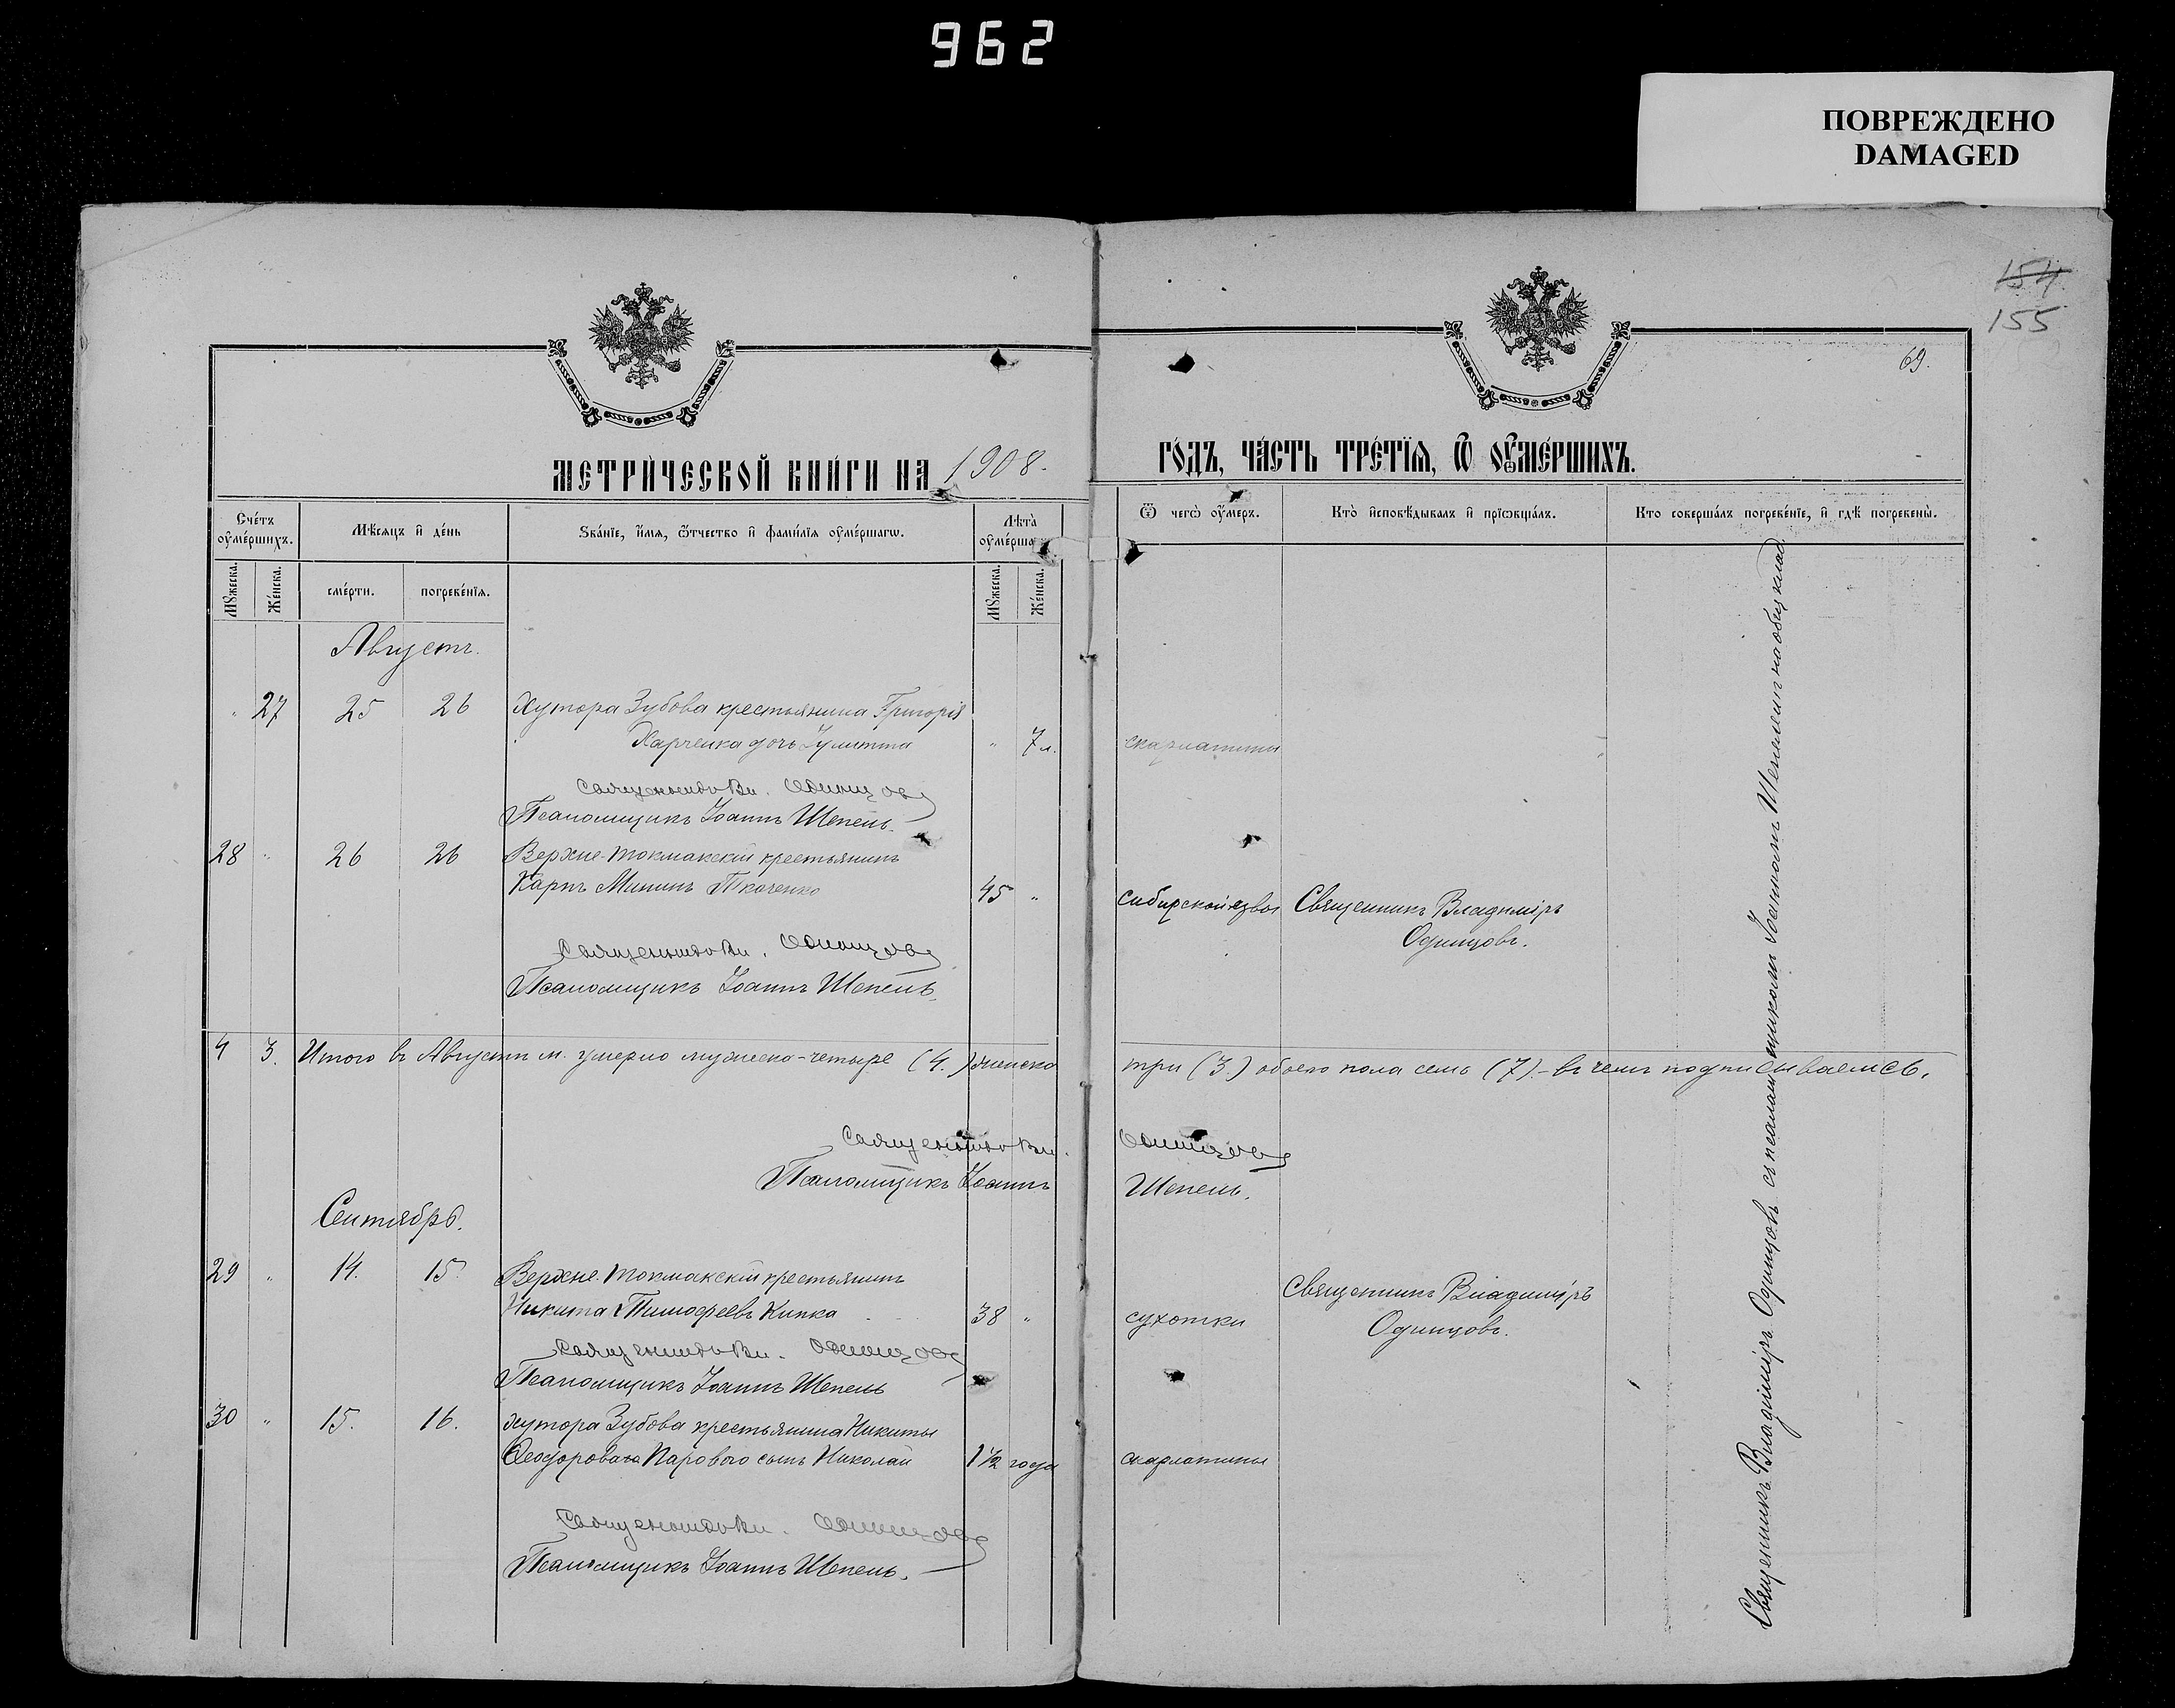 962
ПОВРЕЖДЕНО
DAMAGED
154
155
69.
МЕТРИЧЕСКОЙ КНИГИ НА 1908.
ГОДЪ, ЧАСТЬ ТРЕТІѦ, Ѡ ОУМЕРШИХЪ.
Счетъ оумершихъ.
Мѣсяцъ и день
Званіе, имя, ѿтчество и фамилія оумершагѡ.
Лѣта оумерша
Ѿ чегѡ оумеръ.
Кто исповѣдывалъ и пріѡбщалъ.
Кто совершалъ погребеніе, и гдѣ погребены.
Мужеска.
Женска.
смерти.
погребенія.
Мужеска.
Женска.
Августъ.
" 27 25 26 Хутора Зубова крестьянина Григорія
Харченка дочь Іулитта " 7 л. скарлатины
Священникъ Вл. Одинцовъ
Псаломщикъ Іоаннъ Шепель.
28 " 26 26 Верхне-Токмакскій крестьянинъ
Карпъ Мининъ Ткаченко 45 " сибирской язвы Священникъ Владиміръ
Одинцовъ.
Священникъ Вл. Одинцовъ
Псаломщикъ Іоаннъ Шепель.
4 3. Итого въ Августѣ м. умерло мужеска-четыре (4.) женска три (3.) обоего пола семь (7).- въ чемъ подписываемсь.
Священникъ Вл. Одинцовъ
Псаломщикъ Іоаннъ Шепель.
Сентябрь.
29 " 14. 15. Верхне-Токмакскій крестьянинъ
Никита Тимофеевъ Кипка 38 " сухотки Священникъ Владиміръ
Одинцовъ.
Священникъ Вл. Одинцовъ
Псаломщикъ Іоаннъ Шепель
30 " 15. 16. хутора Зубова крестьянина Никиты
Ѳеодорова Парового сынъ Николай 1 1/2 года скарлатины
Священникъ Вл. Одинцовъ
Псаломщикъ Іоаннъ Шепель.
Священникъ Владиміръ Одинцовъ съ псаломщикомъ Іоанномъ Шепелемъ на общ. клад.